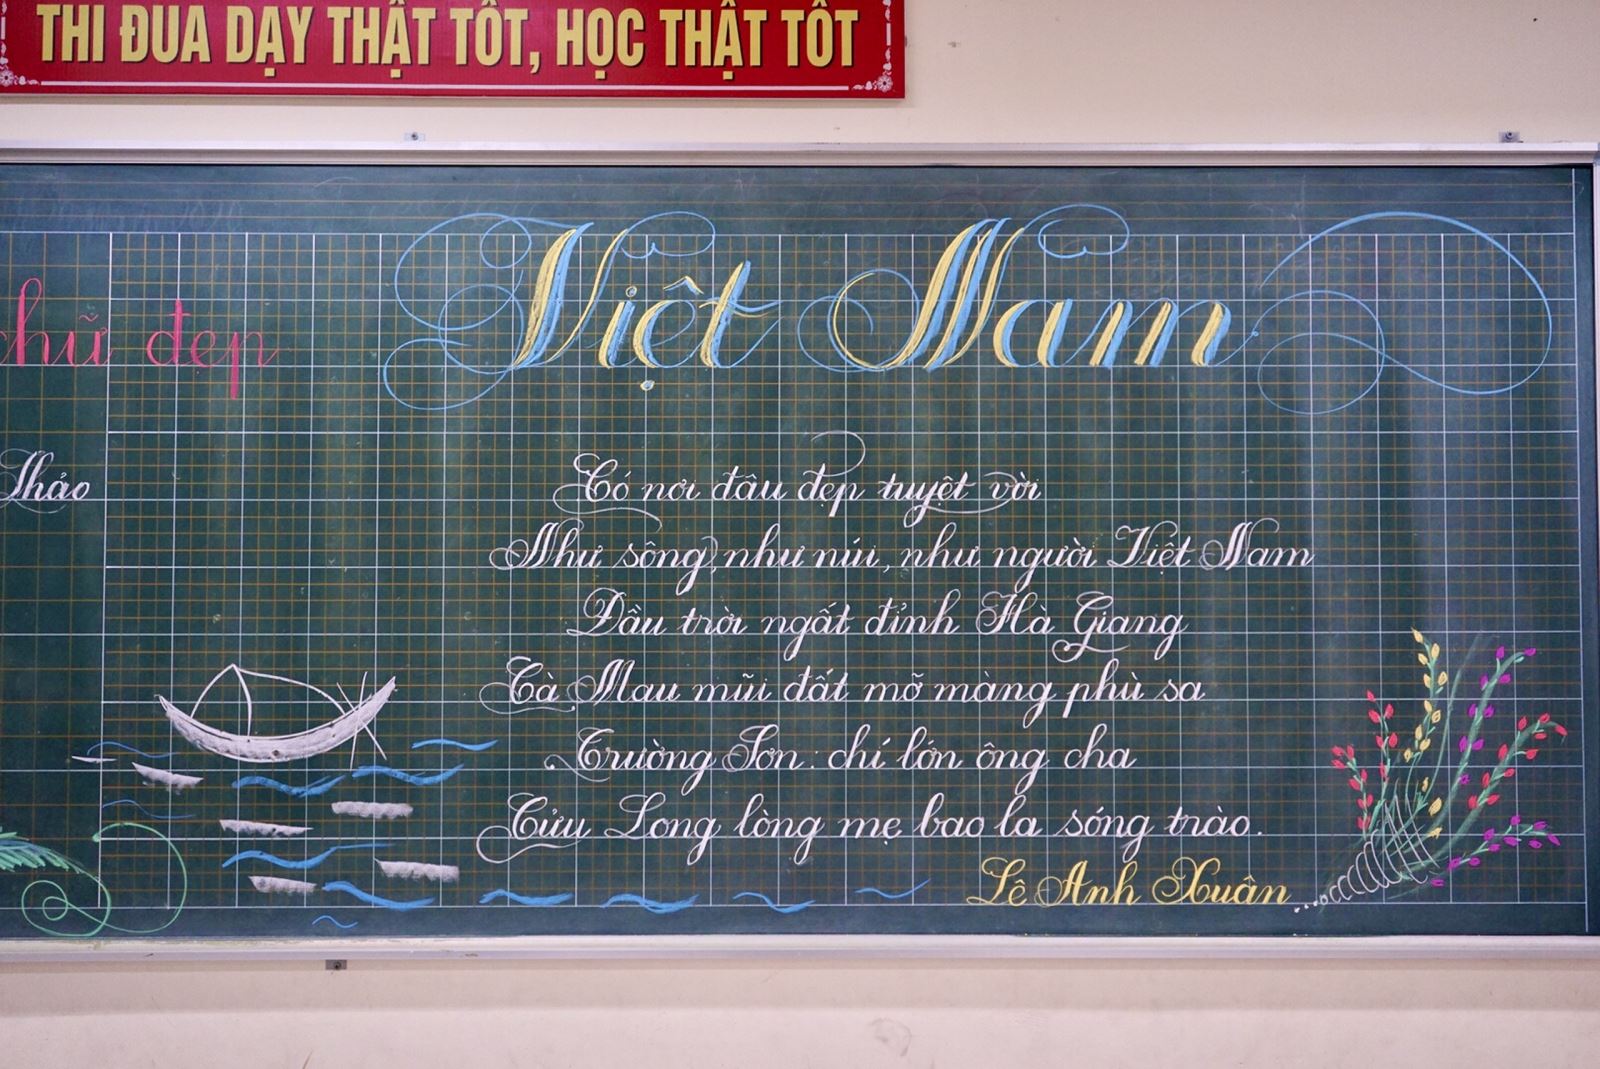 THI ĐUA DẠY THẬT TỐT, HỌC THẬT TỐT
chữ đẹp
Thảo
Việt Nam
Có nơi đâu đẹp tuyệt vời
Như sông, như núi, như người Việt Nam
Đầu trời ngất đỉnh Hà Giang
Cà Mau mũi đất mỡ màng phù sa
Trường Sơn: chí lớn ông cha
Cửu Long lòng mẹ bao la sóng trào.
Lê Anh Xuân